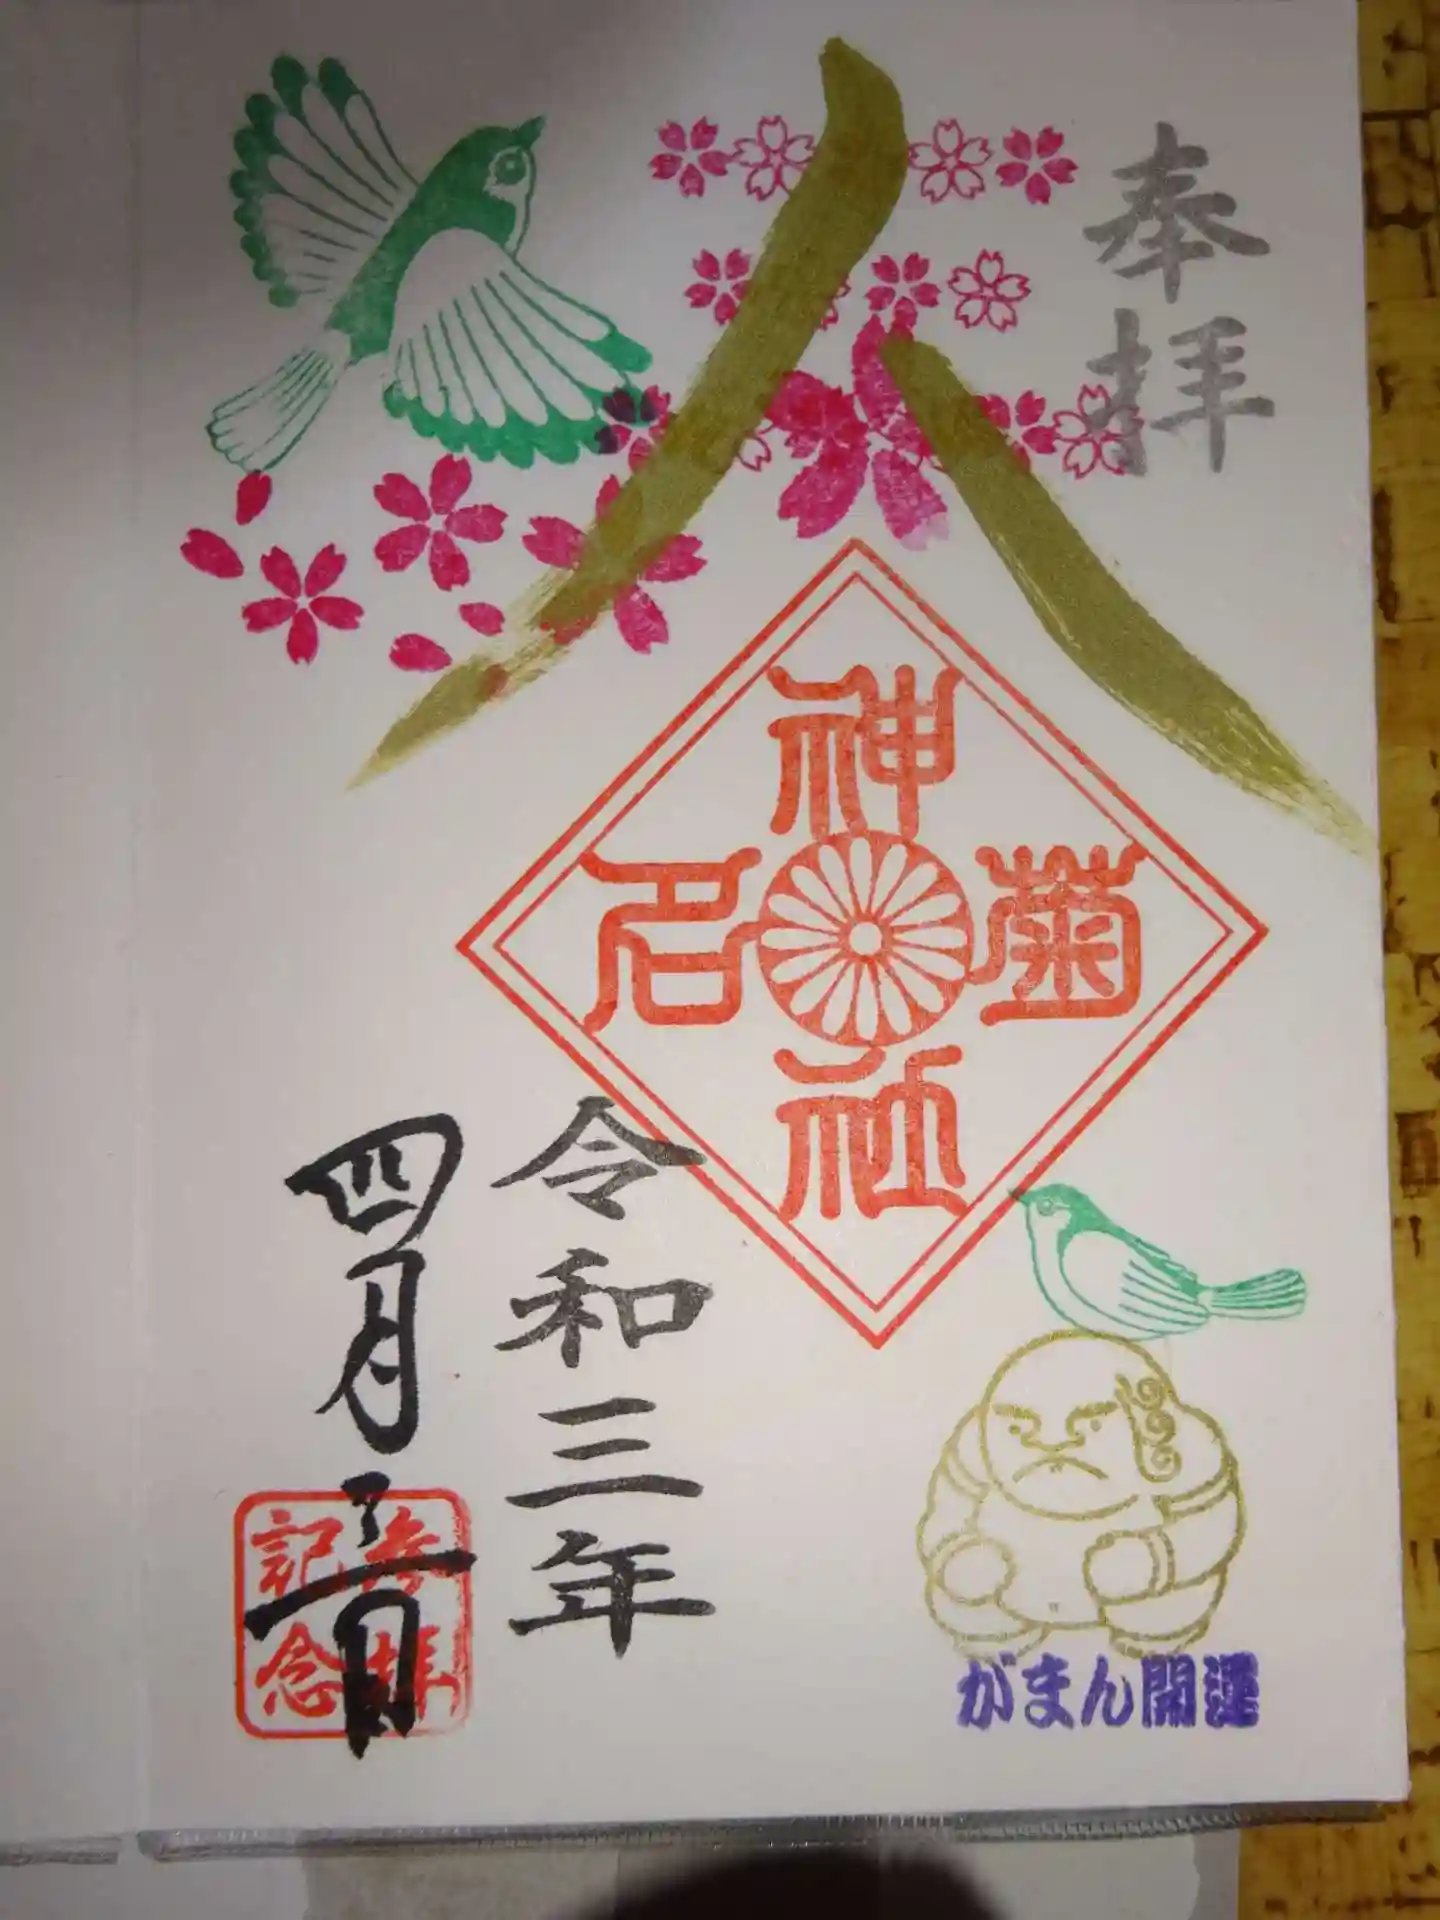 奉拝
菊名神社
令和三年
四月二日
参拝記念
がまん開運